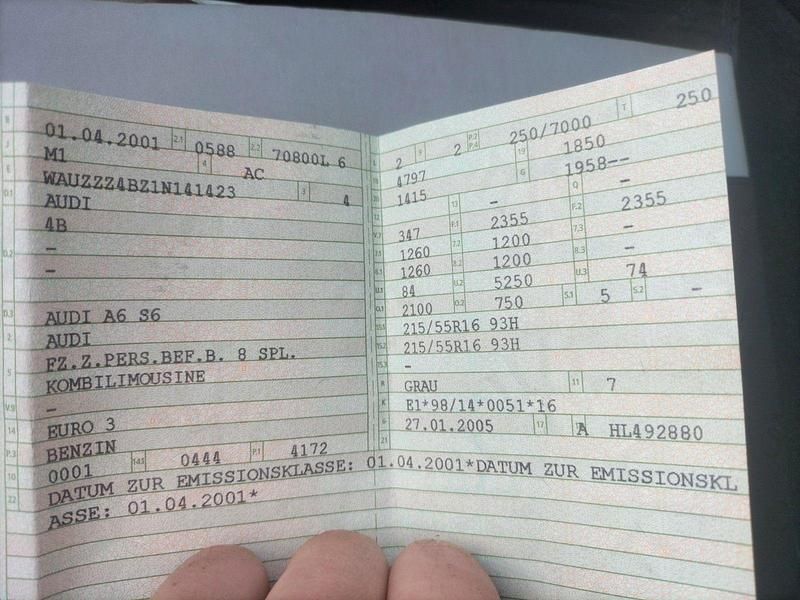 01.04.2001 2.1 0588 2.2 70800L 6
M1 4 AC
WAUZZZ4BZ1N141423 3 4
AUDI
4B
-
-
AUDI A6 S6
AUDI
FZ.Z.PERS.BEF.B. 8 SPL.
KOMBILIMOUSINE
-
EURO 3
BENZIN
0001 14.1 0444 P.1 4172
2 9 2 P.2 P.4 250/7000 T 250
4797 19 1850
1415 G 1958--
13 - Q -
347 F.1 2355 F.2 2355
1260 7.2 1200 7.3 -
1260 8.2 1200 8.3 -
84 U.2 5250 U.3 74
2100 O.2 750 S.1 5 S.2 -
215/55R16 93H
215/55R16 93H
-
R GRAU 11 7
K E1*98/14*0051*16
6 27.01.2005 17 A HL492880
21
DATUM ZUR EMISSIONSKLASSE: 01.04.2001*DATUM ZUR EMISSIONSKL
ASSE: 01.04.2001*